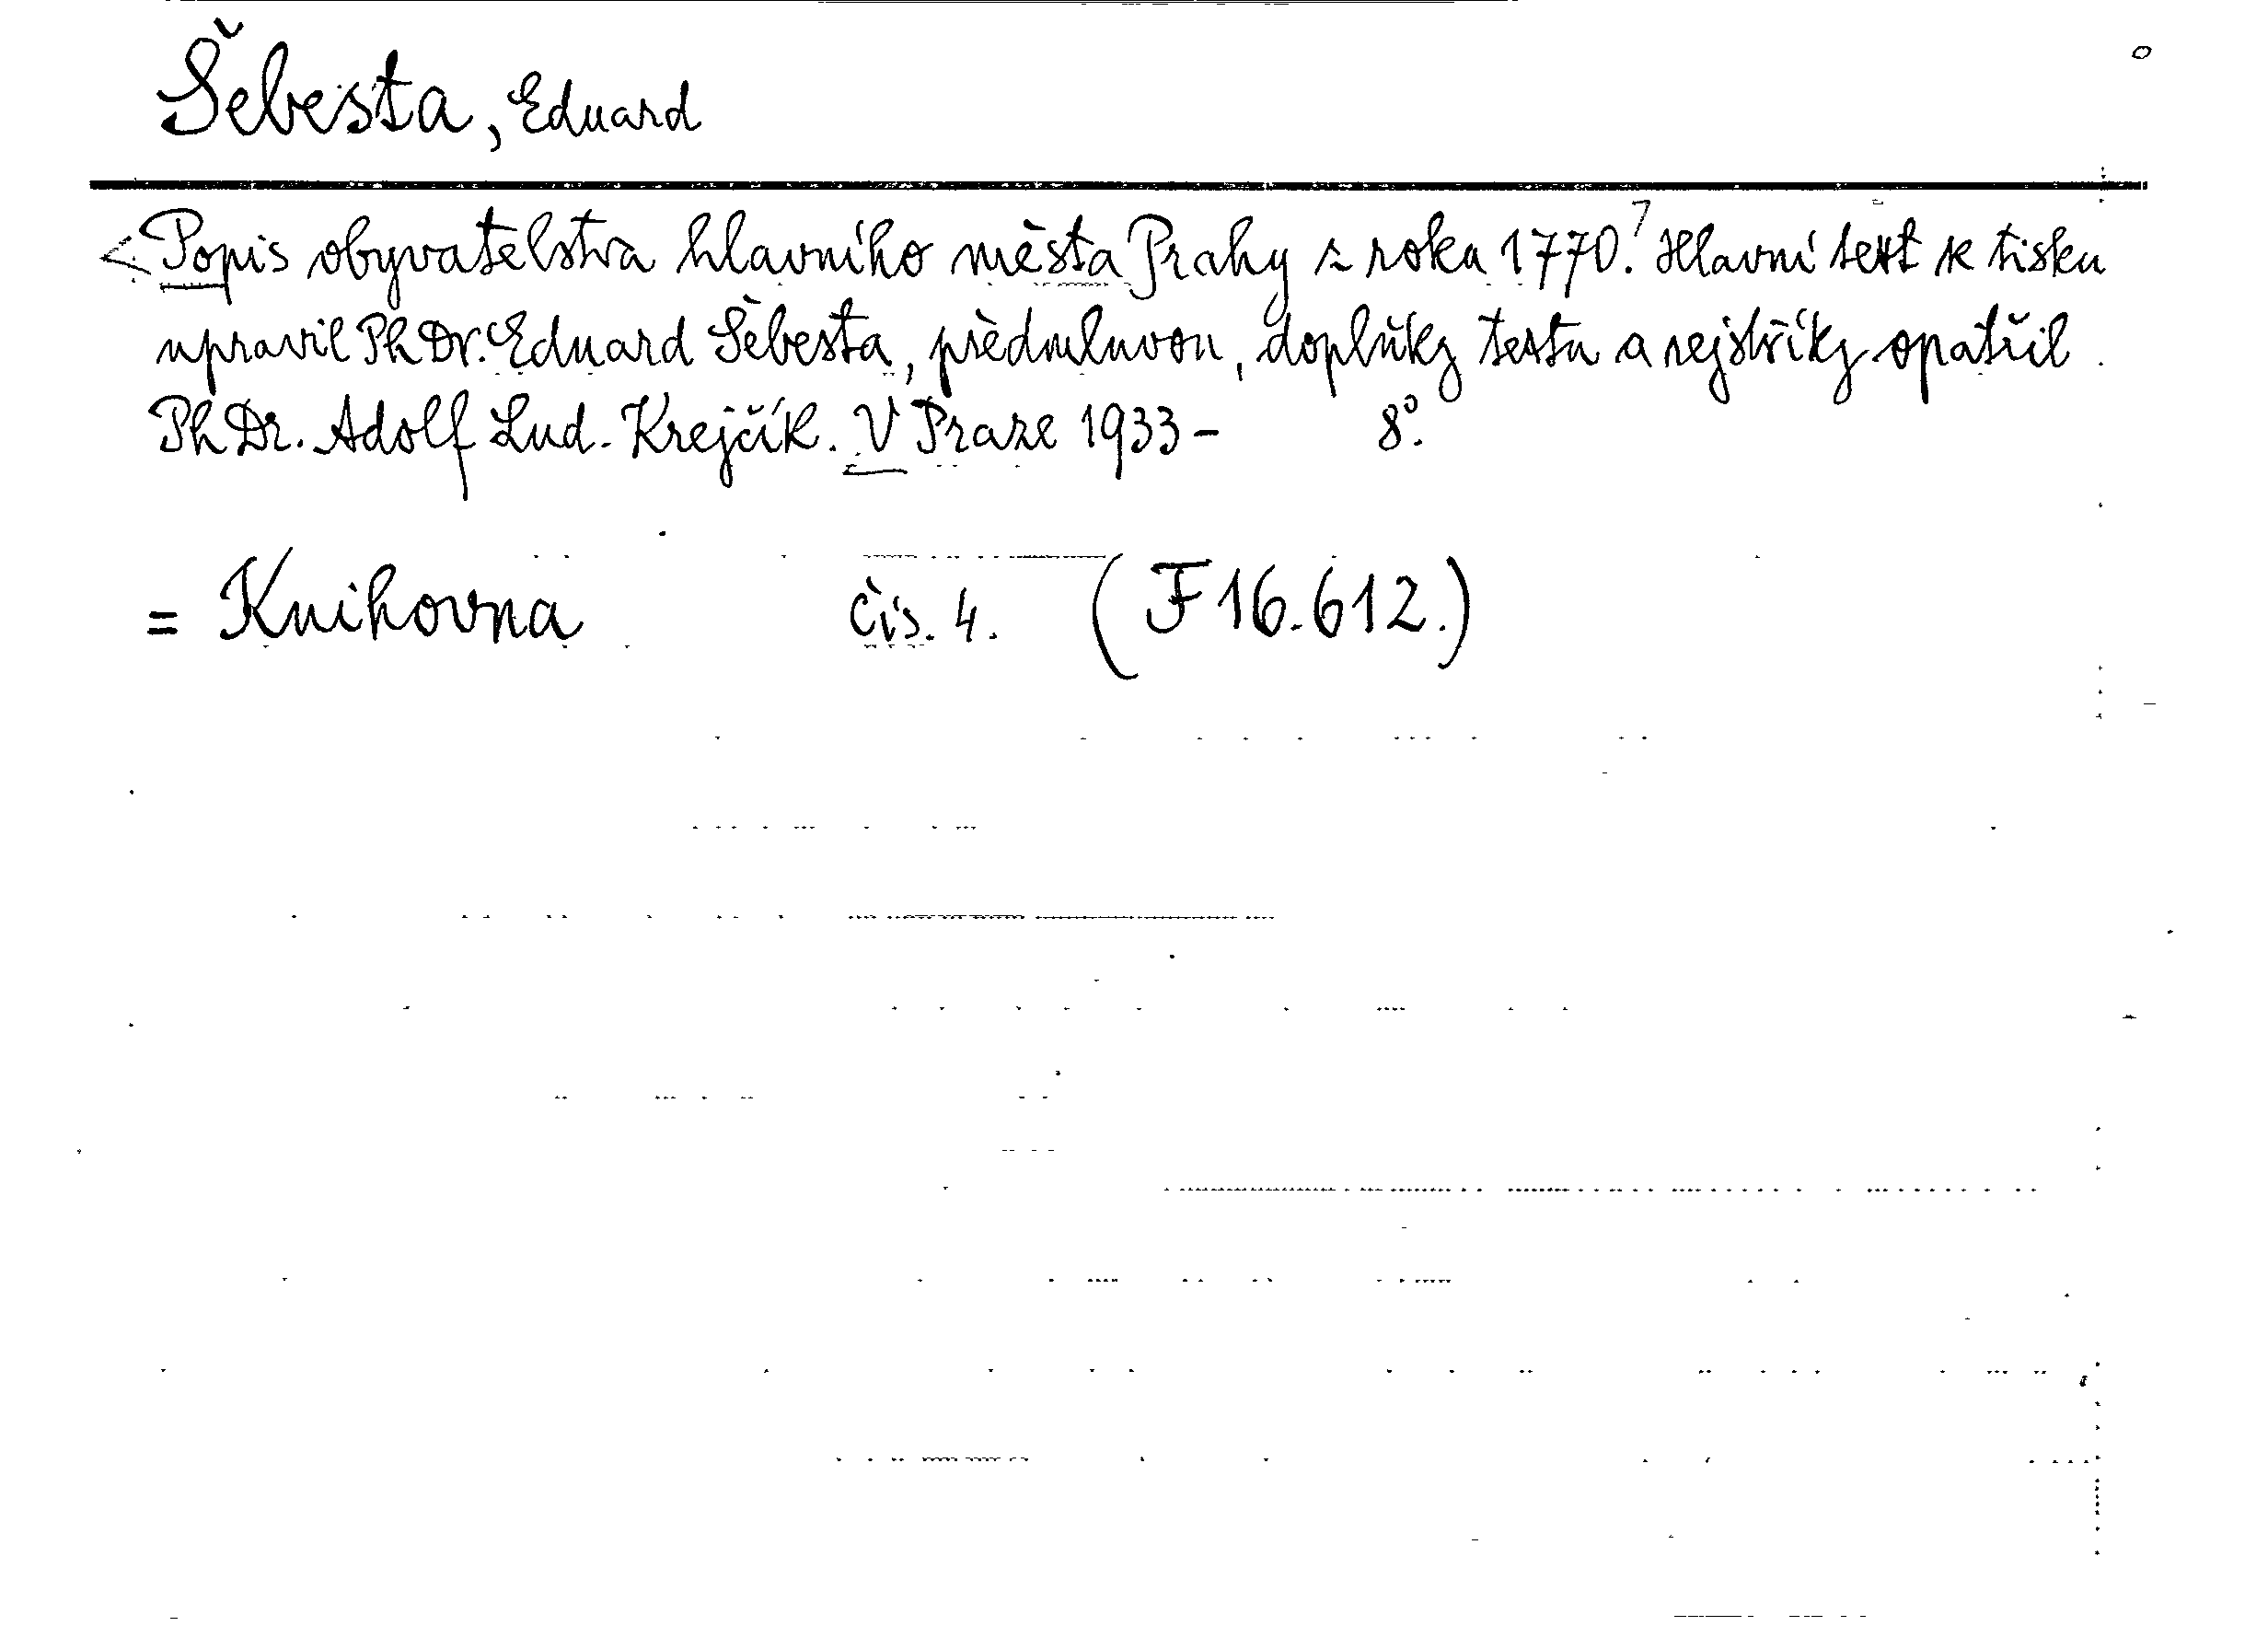 Šebesta, Eduard
<Popis obyvatelstva hlavního města Prahy z roku 1770.> Hlavní text k tisku
upravil PhDr. Eduard Šebesta, předmluvou, doplňky textu a rejstříky opatřil
PhDr. Adolf Lud. Krejčík. V Praze 1933- 8°.
= Knihovna čís. 4. (F 16.612.)